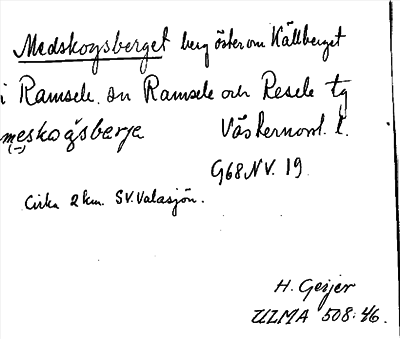 Medskogsberget berg öster om Källberget
i Ramsele sn Ramsele och Resele tg
meskogsberja Västernorrl. l.
(-)
G68 NV. 19
Cirka 2 km. SV. Valasjön.
H. Geijer
ULMA 508:46.